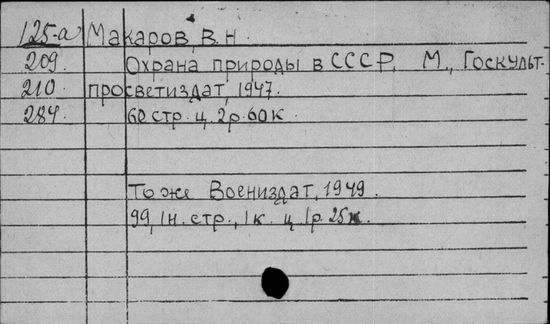 125-а Макаров, В.Н
209. Охрана природы в СССР, М., Госкульт-
210 просветиздат, 1947.
284. 60 стр. ц. 2р. 60к.
То же Воениздат, 1949.
99, 1н. стр., 1к. ц 1р. 25к.